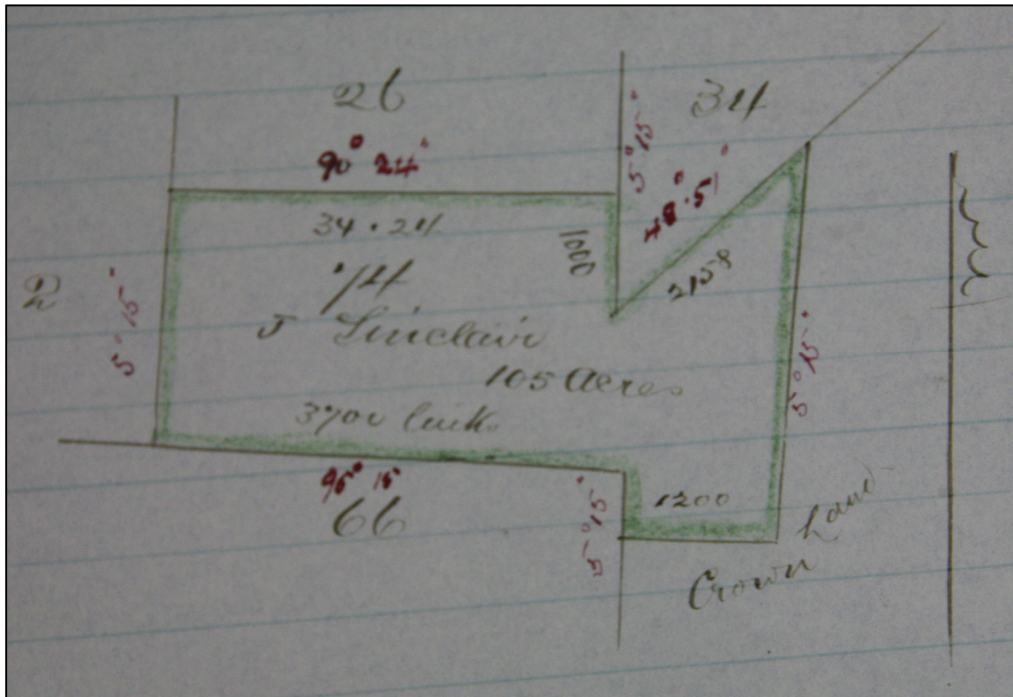 26
34
90° 24'
5° 15'
48° 51'
34.24
1000
2158
2
74
J Sinclair
5° 15'
105 Acres
5° 15'
3700 links
95° 15'
66
5° 15'
1200
Crown Land